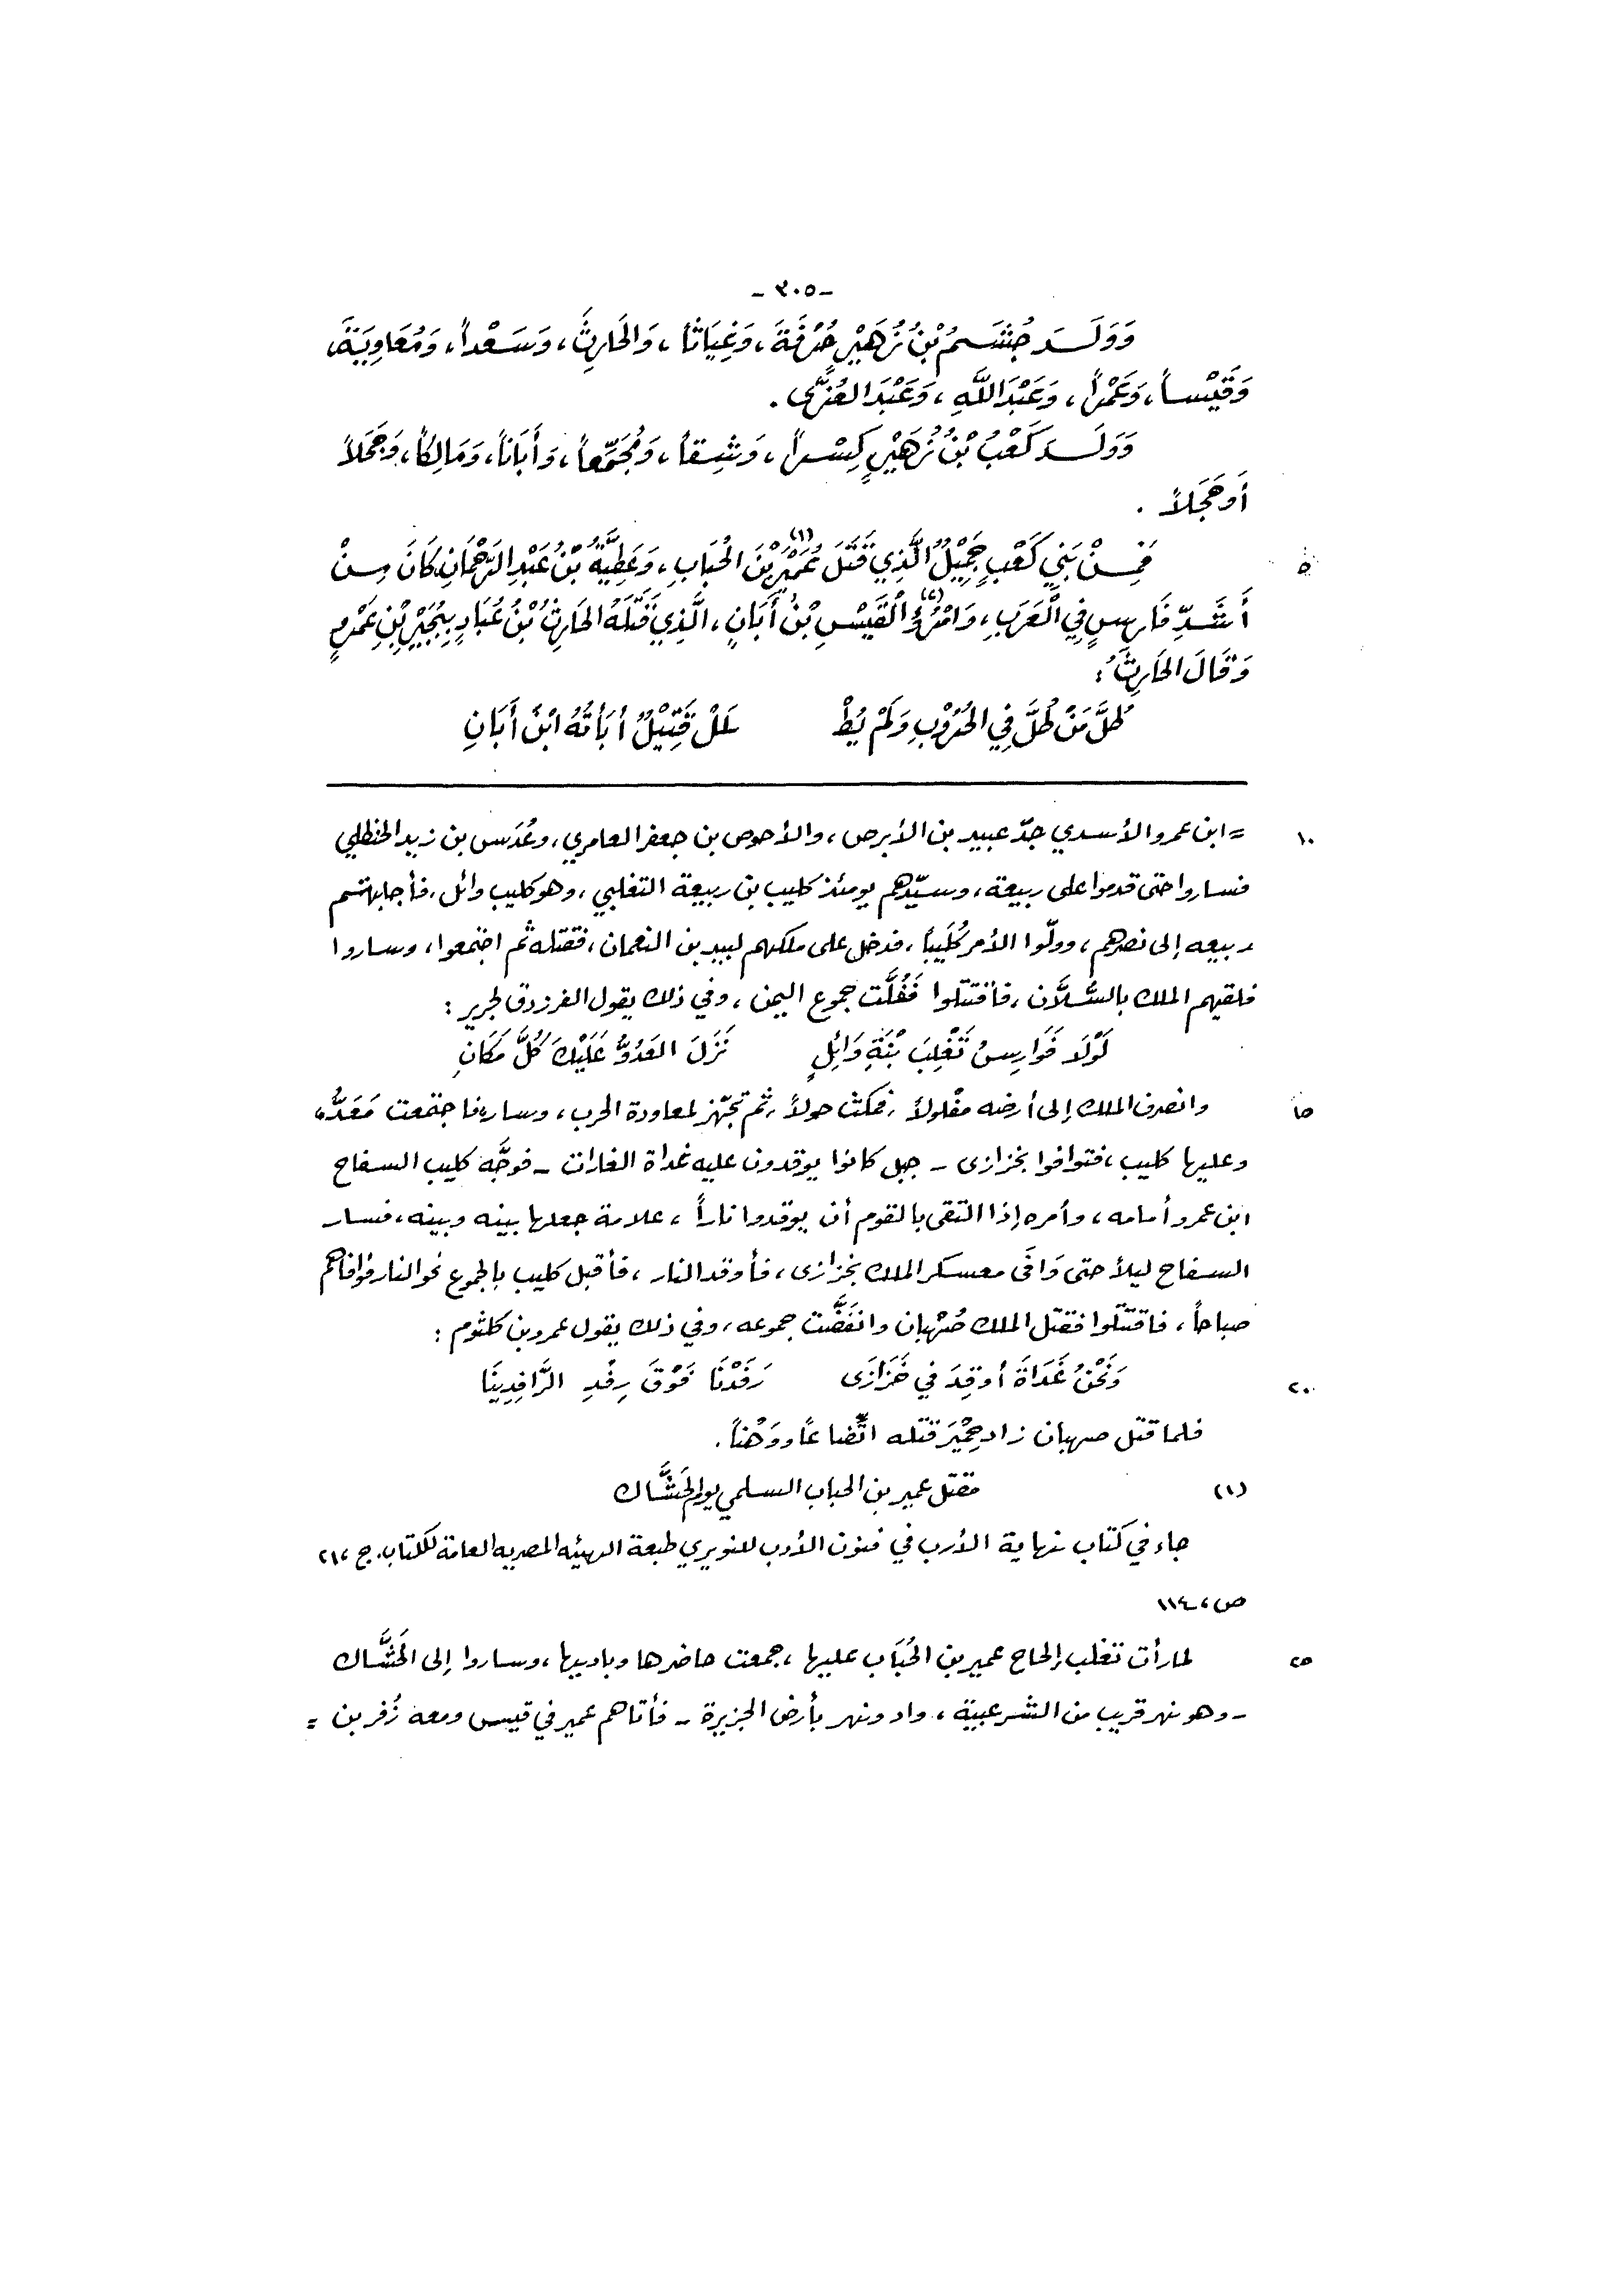 -٣٠٥-
وَوَلَدَ جُشَمُ بْنُ زُهَيْرٍ حُرْفَةَ، وَغِيَاثاً، وَالحَارِثَ، وَسَعْداً، وَمُعَاوِيَةَ،
وَقَيْساً، وَعَمْراً، وَعَبْدَ اللَّهِ، وَعَبْدَ العُزَّى.
وَوَلَدَ كَعْبُ بْنُ زُهَيْرٍ كِسْراً، وَشِقاً، وَمُجَمِّعاً، وَأَبَاناً، وَمَالِكاً، وَجَحَلاً
أَو حَجَلاً.
٥ فَمِنْ بَنِي كَعْبٍ جَمِيْلٌ الَّذِي قَتَلَ عُمَيْرَ بْنَ الحُبَابِ (١)، وَعَطِيَّةُ بْنُ عَبْدِ الرَّحْمَانِ كَانَ مِنْ
أَشَدِّ فَارِسٍ فِي الْعَرَبِ، وَامْرُؤُ الْقَيْسِ (٢) بْنُ أَبَانٍ، الَّذِي قَتَلَهُ الحَارِثُ بْنُ عُبَادٍ بِبُجَيْرِ بْنِ عَمْرٍو
وَقَالَ الحَارِثُ:
طُلَّ مَنْ طُلَّ فِي الحُرُوْبِ وَلَمْ يُطْ لَلْ قَتِيْلٌ أَبَأْتُهُ ابْنَ أَبَانِ
١٠ = ابن عمرو الأسدي جدّ عبيد بن الأبرص، والأحوص بن جعفر العامري، وعُدَس بن زيد الحنظلي
فساروا حتى قدموا على ربيعة، وسيّدهم يومئذ كليب بن ربيعة التغلبي، وهو كليب وائل، فأجابتهم
ربيعه إلى نصرهم، وولّوا الأمر كُلَيباً، فدخل على ملكهم لبيد بن النعمان، فقتله ثم اجتمعوا، وساروا
فلقيهم الملك بالسُّلَّان، فأقتتلوا فَفُلَّت جموع اليمن، وفي ذلك يقول الفرزدق لجرير:
لَوْلَا فَوَارِسُ تَغْلِبَ بْنَةِ وَائِلٍ نَزَلَ العَدُوُّ عَلَيْكَ كُلَّ مَكَانِ
١٥ وانصرف الملك إلى أرضه مفلولاً، فمكث حولاً، ثم تجهّز لمعاودة الحرب، وسار، فاجتمعت مَعَدُّ،
وعليها كليب، فتوافوا بخزازى - جبل كانوا يوقدون عليه غداة الغارات - فوجَّه كليب السفاح
ابن عمرو أمامه، وأمره إذا التقى بالقوم أن يوقدوا ناراً، علامة جعلها بينه وبينه، فسار
السفاح ليلاً حتى وَافَى معسكر الملك بخزازى، فأوقد النار، فأقبل كليب بالجموع نحو النار فوافاهم
صباحاً، فاقتتلوا فقتل الملك صُهْبان وانفَضَّت جموعه، وفي ذلك يقول عمرو بن كلثوم:
٢٠ وَنَحْنُ غَدَاةَ أُوقِدَ في خَزَازَى رَفَدْنَا فَوْقَ رِفْدِ الرَّافِدِينَا
فلما قتل صهبان زاد حِمْيَر قتله اتّضاعاً ووَهْناً.
(١) مقتل عمير بن الحباب السلمي يوم الحَشَّاك
جاء في كتاب نهاية الأرب في فنون الأدب للنويري طبعة الهيئه المصريه العامة للكتاب. ج ٢١،
ص، ١١٤
٢٥ لما رأت تغلب إلحاح عمير بن الحُبَاب عليها، جمعت حاضرها وباديها، وساروا إلى الحَشَّاك
- وهو نهر قريب من الشرعبية، واد ونهر بأرض الجزيرة - فأتاهم عمير في قيس ومعه زُفر بن =